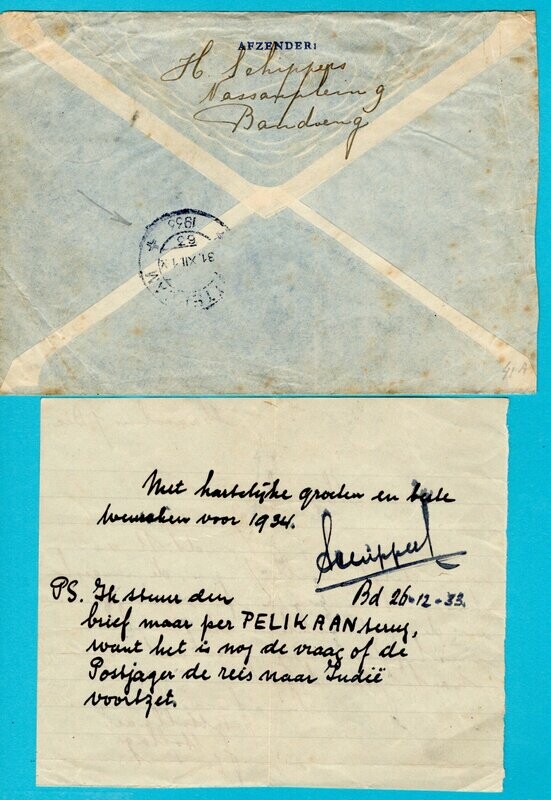 AFZENDER:
H. Schippers
Nassauplein 9
Bandoeng
1933
31.XII.1
AMSTERDAM
Met hartelijke groeten en beste
wenschen voor 1934.
Schippers
Bd 26-12-33.
PS. Ik stuur den
brief maar per PELIKAAN terug,
want het is nog de vraag of de
Postjager de reis naar Indië
voortzet.